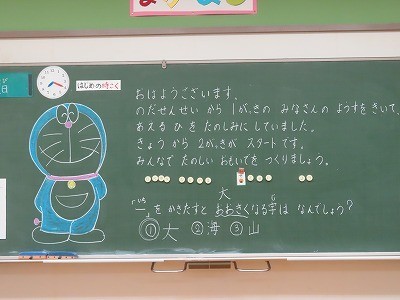 日
はじめの時こく
おはようございます。
のだせんせい から 1がっきの みなさんの ようすをきいて、
あえる ひ を たのしみに していました。
きょう から 2がっきが スタートです。
みんなで たのしい おもいでを つくりましょう。
大
「一」を かきたすと おおきくなる字は なんでしょう?
①大 ②海 ③山